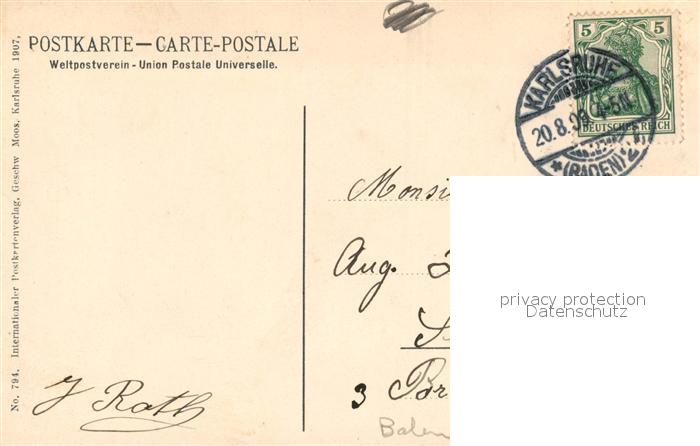 POSTKARTE — CARTE-POSTALE
Weltpostverein - Union Postale Universelle.
No. 794. Internationaler Postkartenverlag, Geschw Moos, Karlsruhe 1907.
5 5
DEUTSCHES REICH
KARLSRUHE
20.8.09. 4-5N.
* (BADEN) 2
Monsi
Aug.
3 Br
J Rath
privacy protection
Datenschutz